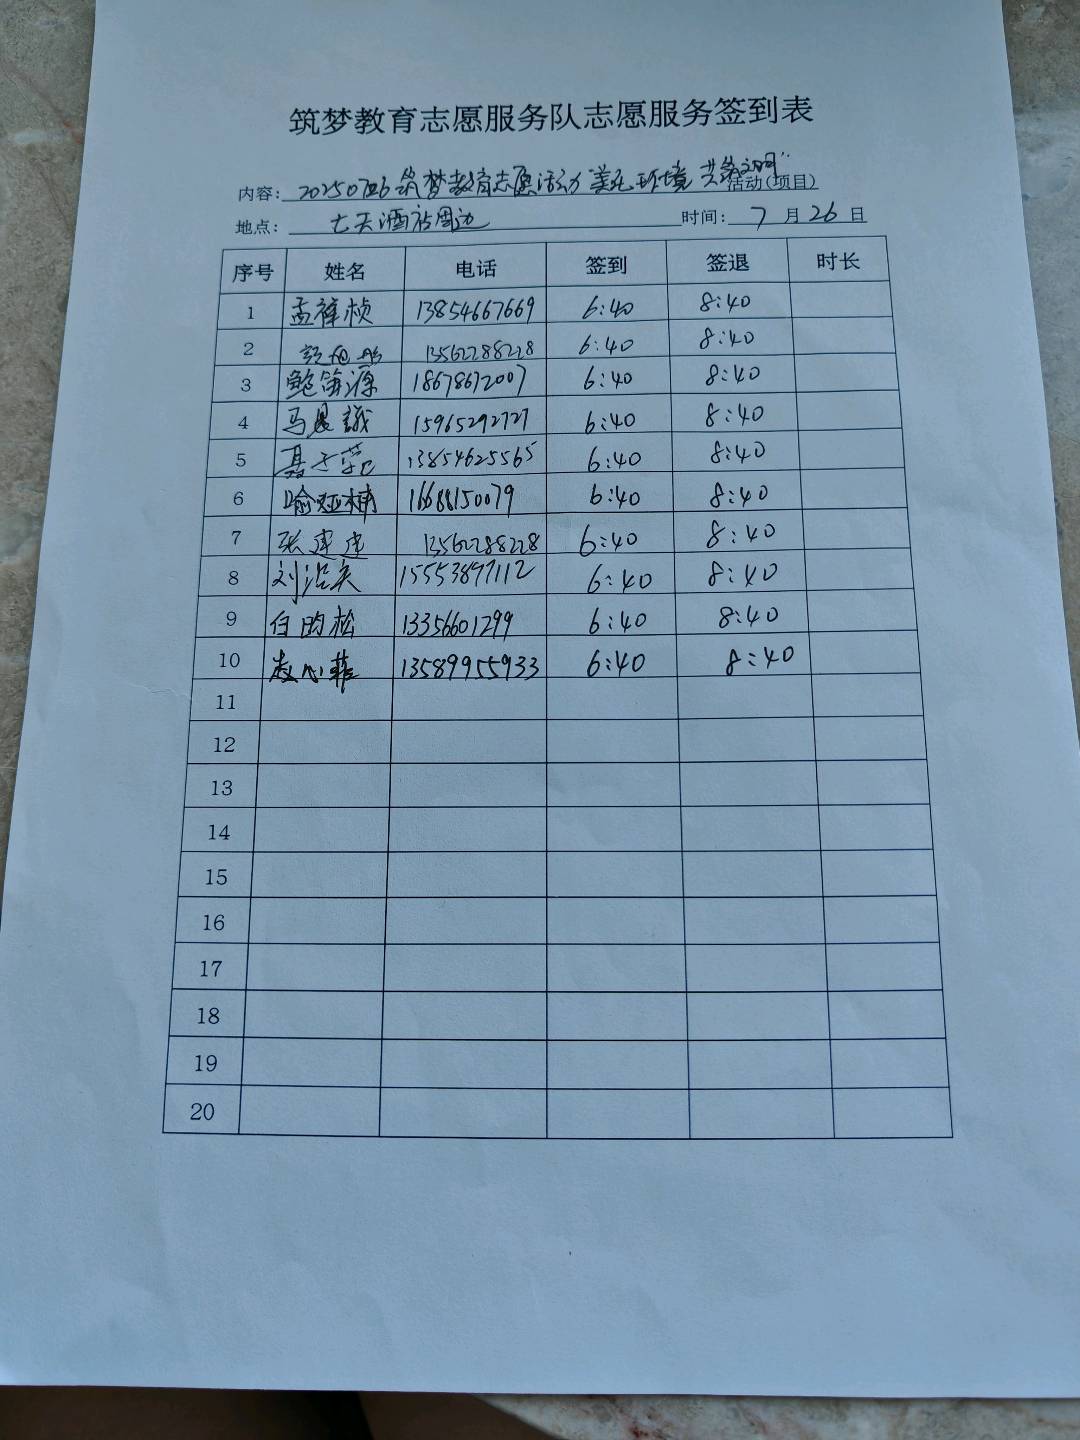 筑梦教育志愿服务队志愿服务签到表
内容: 20250726筑梦教育志愿活动 美化环境 共筑文明" 活动(项目)
地点: 七天酒店周边 时间: 7 月 26 日
序号 姓名 电话 签到 签退 时长
1 孟祥桢 13854667669 6:40 8:40
2 13562288228 6:40 8:40
3 鲍笛源 18678672007 6:40 8:40
4 马晨議 15965292727 6:40 8:40
5 13854625565 6:40 8:40
6 喻娅楠 16688150079 6:40 8:40
7 张建建 13562288228 6:40 8:40
8 刘浩矣 15553897112 6:40 8:40
9 白昀松 13356601299 6:40 8:40
10 心菲 13589955933 6:40 8:40
11
12
13
14
15
16
17
18
19
20